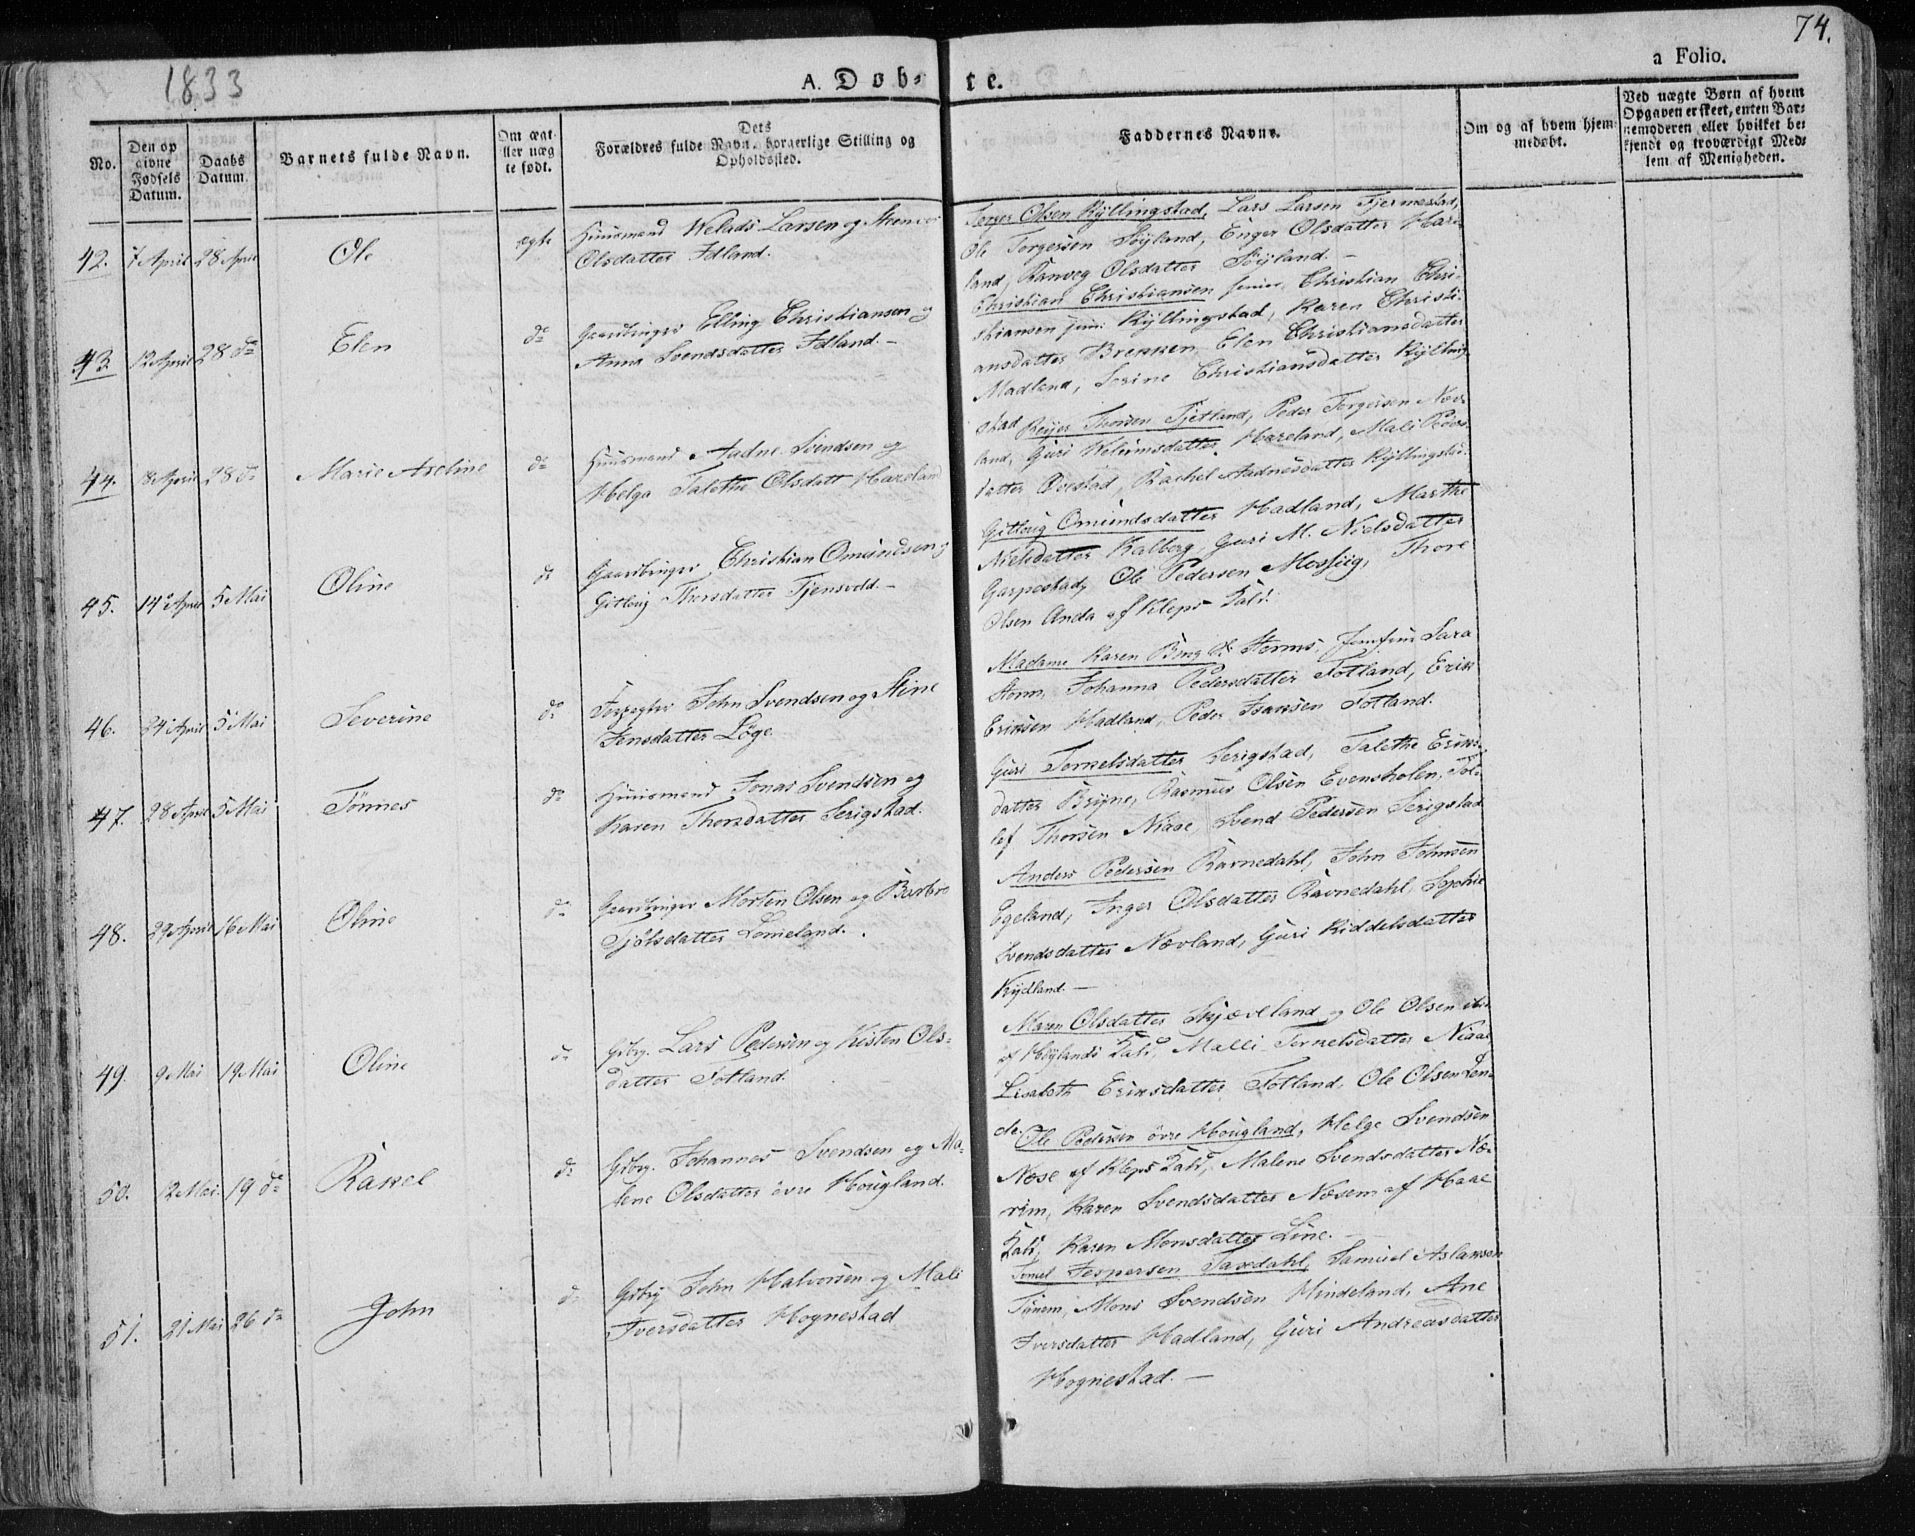 74.
1833
A. Døb-
te.
a Folio.
No.
Den op
givne
Fødsels
Datum.
Daabs
Datum.
Barnets fulde Navn.
Om ægt-
ller uæg
te født.
Dets
Forældres fulde Navn, borgerlige Stilling og
Opholdssted.
Faddernes Navne.
Om og af hvem hjem-
medøbt.
Ved uægte Børn af hvem
Opgaven er skeet, enten Bar-
nemoderen eller hvilket be-
kjendt og troværdigt Med-
lem af Menigheden.
42. 7 April 28 April Ole ægte
Huusmand Larsen og
Olsdatter Idland.
Olsen Kÿllingstad, Lars Larsen Tjermestad,
Ole Torgersen Söÿland, Enger Olsdatter Hare-
land, Ranveg Olsdatter Söÿland. —
43. 12 April 28 do Elen do
Gaardbruger Elling Christiansen og
Anna Svendsdatter Idland. —
Christian Christiansen senior, Christian Chri-
stiansen jun: Kÿllingstad, Karen Christi-
ansdatter Brekken, Elen Christiansdatter
Madland, Serine Christiansdatter Kÿlling-
stad
44. 18 April 28 do Marie Axeline do
Huusmand Aadne Svendsen og
Helga Talethe Olsdatt Hareland
Reÿer Thorsen Tjetland, Peder Torgersen Nev-
land, Guri Hareland, Mali Peders-
datter Qvestad, Rachel Aadnesdatter Kÿllingstad.
45. 14 April 5 Mai Oline do
Gaardbruger Christian Omundsen og
Gitloug Thorsdatter Tjensvold. —
Gitloug Omundsdatter Hadland, Marthe
Nielsdatter Kalberg, Guri M. Nielsdatter
Garpestad, Ole Pedersen Mossiig, Thore
Olsen Anda af Kleps Kald.
46. 24 April 5 Mai Severine do
Forpagter John Svendsen og Stine
Jensdatter Löge.
Madame Karen Storms, Jomfrue Sara
Storm, Johanna Pedersdatter Totland, Erik
Eriksen Hadland, Peder Isaksen Totland.
47. 28 April 5 Mai Tönnes do
Huusmand Jonas Svendsen og
Karen Thorsdatter Serigstad.
Guri Torkelsdatter Serigstad, Talethe Eriks-
datter Brÿne, Rasmus Olsen Evensholen, Tol-
lef Thorsen Niaae, Svend Pedersen Serigstad
48. 29 April 16 Mai Oline do
Gaardbruger Morten Olsen og Barbro
Tjölsdatter Lomeland.
Anders Pedersen Ravnedahl, John Johnsen
Egeland, Inger Olsdatter Ravnedahl, Sophie
Svendsdatter Nevland, Guri Kiddelsdatter
Kÿdland. —
49. 9 Mai 19 Mai Oline do
Gdbrg. Lars Pedersen og Kisten Ols-
datter Totland.
Maren Olsdatter Skjæveland og Ole Olsen ibid
af Höÿlands Kald, Malli Torkelsdatter Niaae,
Lisabeth Eriksdatter Totland, Ole Olsen Len-
de.
50. 12 Mai 19 do Rakel do
Gdbrg. Johannes Svendsen og Ma-
lene Olsdatter övre Hougland.
Ole Pedersen övre Hougland, Helge Svendsen
Nese af Kleps Kald, Malene Svendsdatter Næ-
rim, Karen Svendsdatter Næsem af Haae
Kald, Karen Monsdatter Line. —
51. 21 Mai 26 do John do
Gdbrg John Halvorsen og Mali
Iversdatter Hognestad
Jespersen Taxdahl, Samuel Aslaksen
Tunem, Mons Svendsen Mindeland, Ane
Iversdatter Hadland, Guri Andreasdatter
Hognestad. —